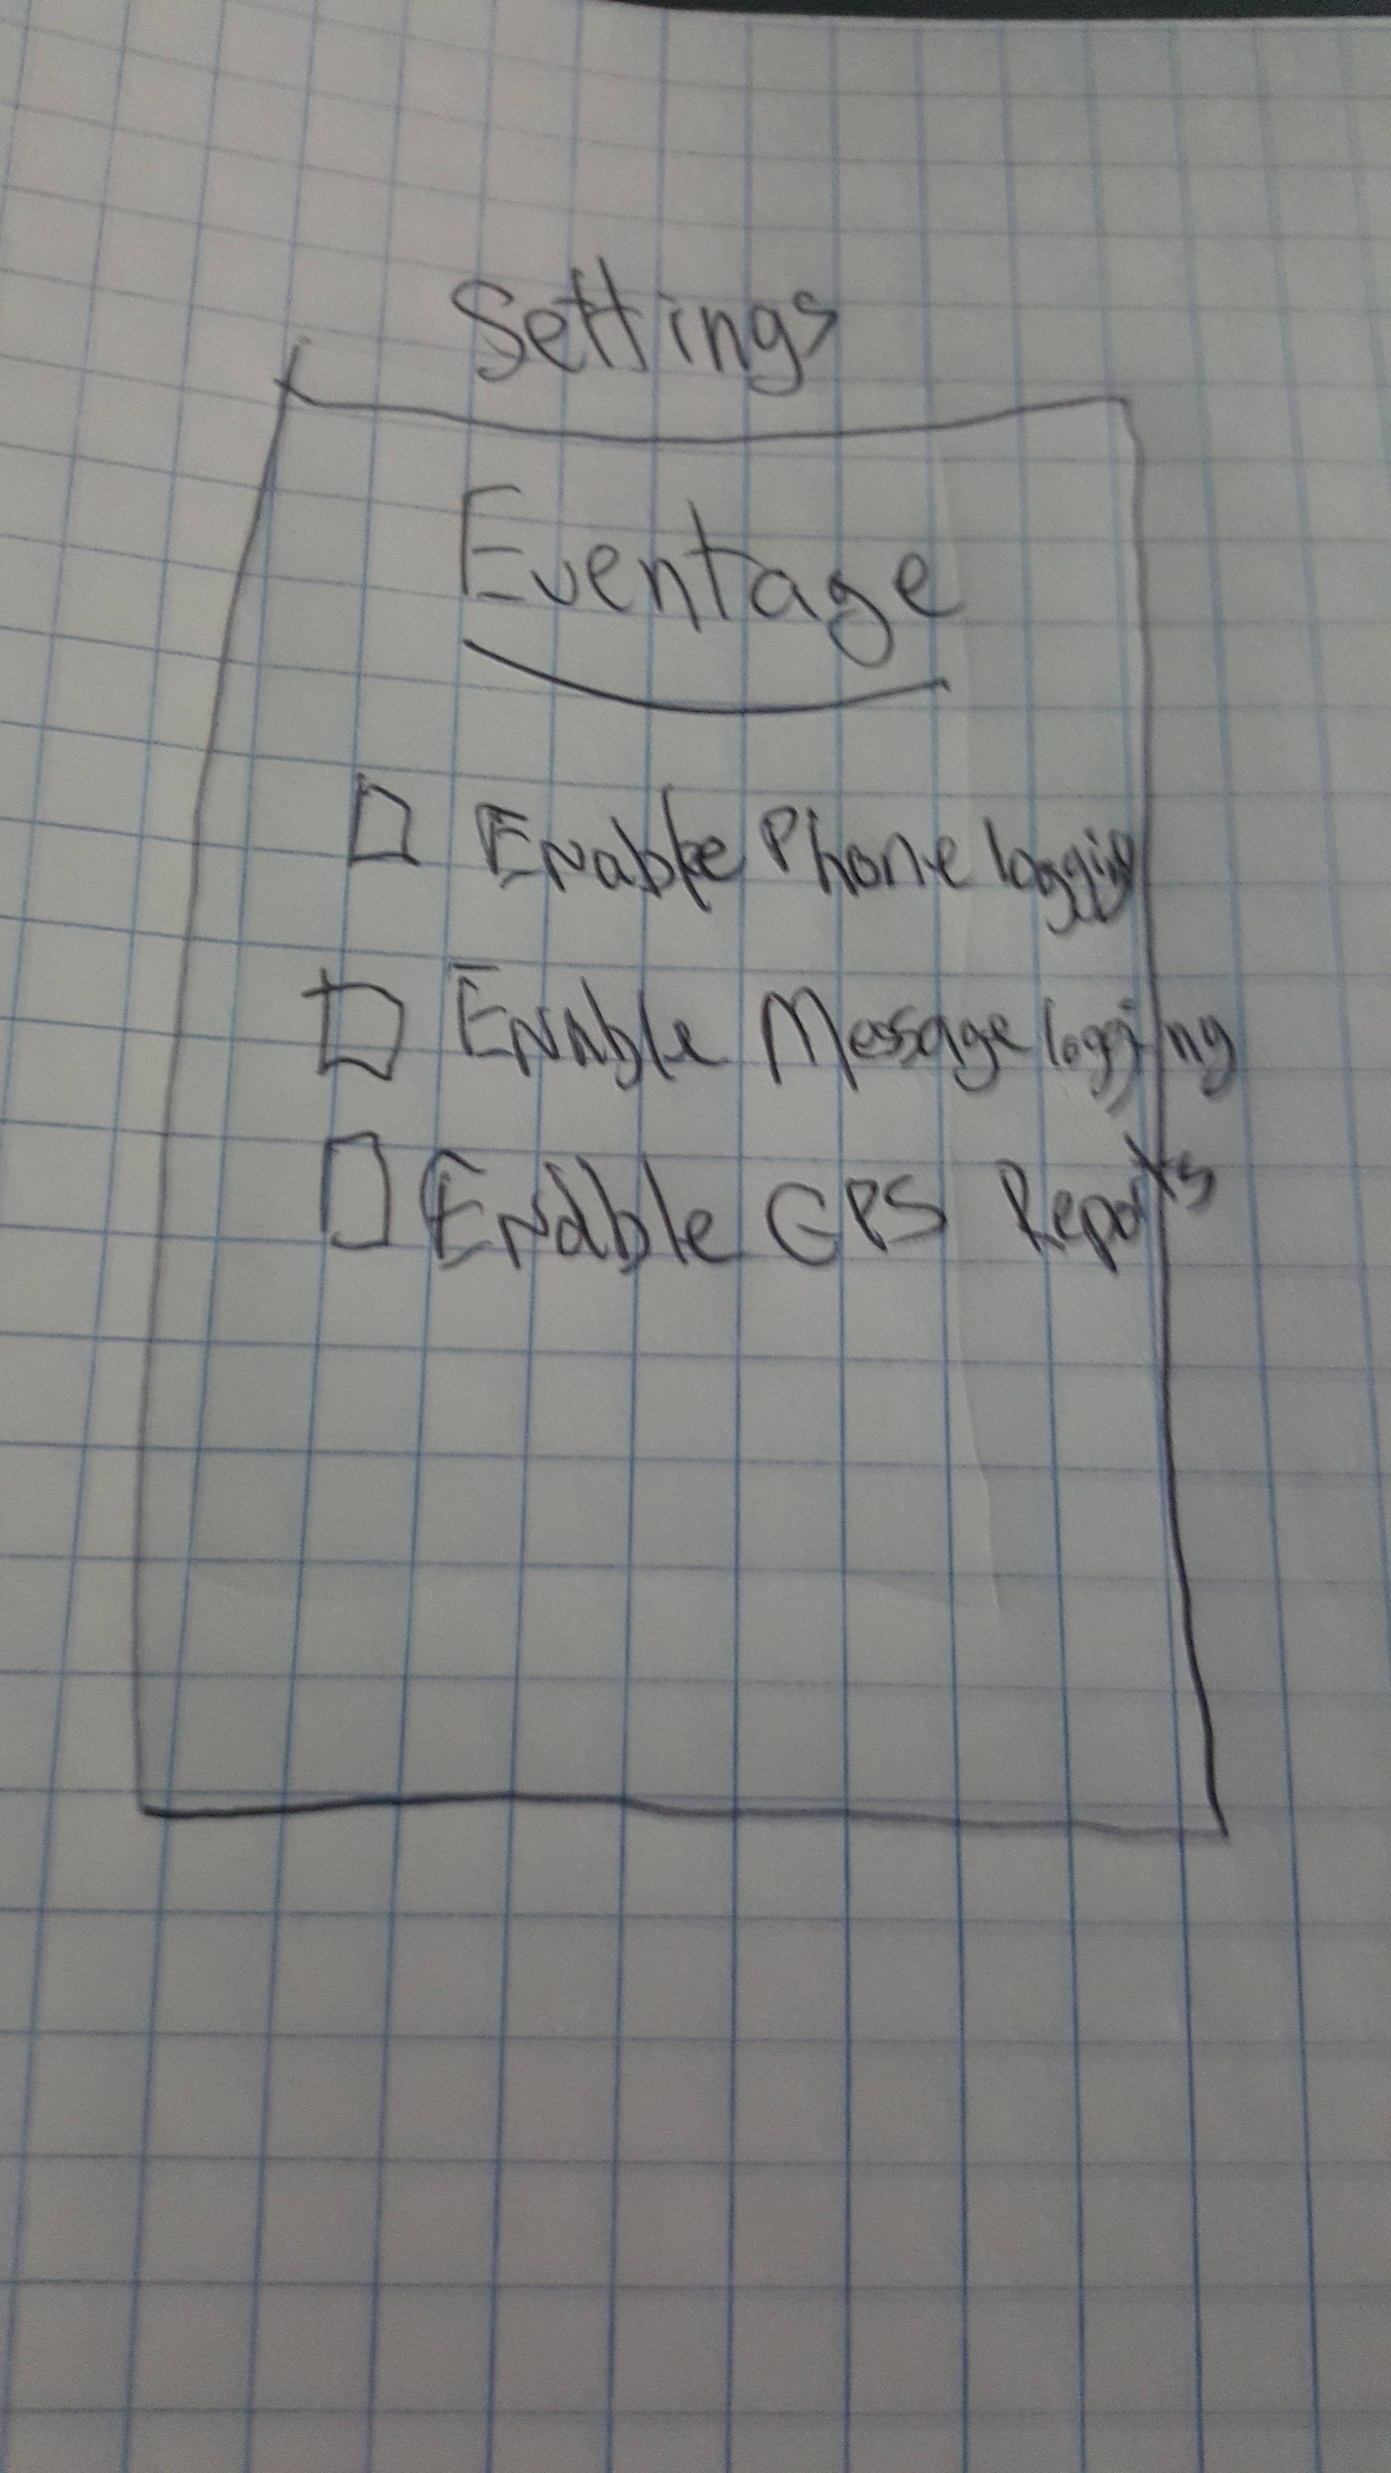 Settings
Eventage
Enable Phone logging
Enable Message logging
Enable GPS Reports